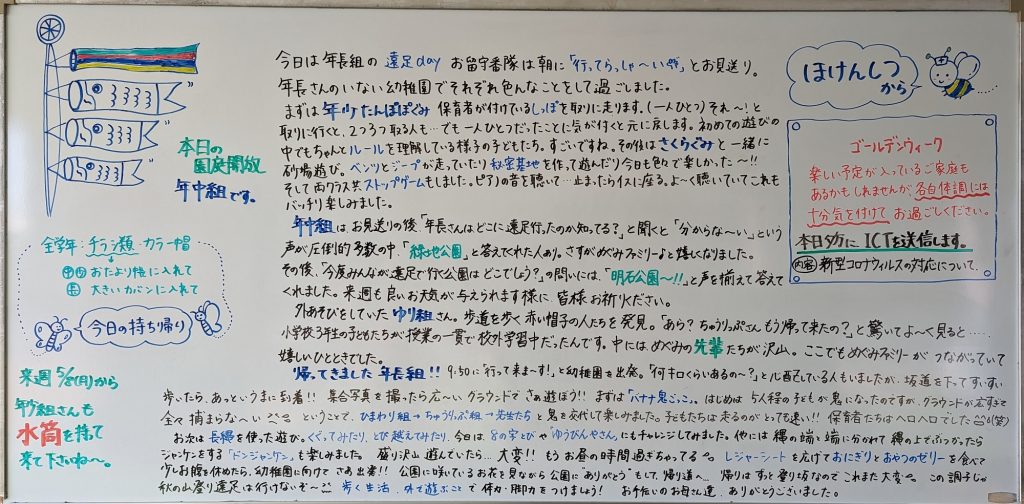 今日は年長組の 遠足day お留守番隊は朝に「行ってらっしゃ〜い」とお見送り。
年長さんのいない幼稚園でそれぞれ色んなことをして過ごしました。
まずは 年少たんぽぽぐみ 保育者が付けているしっぽを取りに走ります。(一人ひとつ) それ〜! と
取りに行くと、2つ3つ取る人も…でも一人ひとつだったことに気が付くと元に戻します。初めての遊びの
中でもちゃんとルールを理解している様子の子どもたち。すごいですね。その後はさくらぐみと一緒に
砂場遊び。ベンツとジープが走っていたり秘密基地を作って遊んだり今日も色々で楽しかった〜!!
そして両クラス共ストップゲームもしました。ピアノの音を聴いて…止まったらイスに座る。よ〜く聴いていてこれも
バッチリ楽しみました。
年中組は、お見送りの後「年長さんはどこに遠足行ったのか知ってる?」と聞くと「分からな〜い」という
声が圧倒的多数の中、「緑地公園」と答えてくれた人あり。さすがめぐみファミリー♪と嬉しくなりました。
その後、「今度みんなが遠足で行く公園はどこでしょう?」の問いには、「明石公園〜!!」と声を揃えて答えて
くれました。来週も良いお天気が与えられます様に 皆様お祈りください。
外あそびをしていた ゆり組さん。歩道を歩く赤い帽子の人たちを発見。「あら?ちゅうりっぷさんもう帰って来たの?」と驚いてよ〜く見ると……
小学校3年生の子どもたちが授業の一貫で校外学習中だったんです。中にはめぐみの先輩たちが沢山。ここでもめぐみファミリーがつながっていて
嬉しいひとときでした。
帰ってきました 年長組!! 9:50に「行って来ま〜す!」と幼稚園を出発。「何キロくらいあるの〜?」と心配している人もいましたが、坂道を下ってすいすい
歩いたら、あっというまに到着!! 集合写真を撮ったら広〜いグラウンドでさぁ遊ぼう!! まずは「バナナ鬼ごっこ」。はじめは5人程の子どもが鬼になったのですが、グラウンドが広すぎて
全々捕まらな〜い ということで、ひまわり組→ちゅうりっぷ組→先生たちと鬼を交代して楽しみました。子どもたちは走るのがとっても速い!! 保育者たちはヘロヘロでした(笑)
お次は長縄を使った遊び。くぐってみたり、とび越えてみたり、今日は8の字とびや「ゆうびんやさん」にもチャレンジしてみました。他には縄の端と端に分かれて縄の上でぶつかったら
ジャンケンをする「ドンジャンケン」も楽しみました。盛り沢山遊んでいたら…大変!! もうお昼の時間過ぎちゃってる〜。レジャーシートを広げておにぎりとおやつのゼリーを食べて
少しお腹を休めたら、幼稚園に向けてさあ出発!! 公園に咲いているお花を見ながら公園に"ありがとう"もして、帰り道へ。帰りはずっと登り坂なのでこれまた大変〜。この調子じゃ
秋の山登り遠足は行けないぞ〜 歩く生活、外で遊ぶことで体力・脚力をつけましょう! お手伝いのお母さん達、ありがとうございました。
本日の
園庭開放
年中組です。
全学年:チラシ類 カラー帽
おたより帳に入れて
長 大きいカバンに入れて
今日の持ち帰り
来週5/8(月)から
年少組さんも
水筒を持って
来て下さいね〜。
ほけんしつ
から
ゴールデンウィーク
楽しい予定が入っているご家庭も
あるかもしれませんが、各自体調には
十分気を付けてお過ごしください。
本日夕方にICTを送信します。
内容 新型コロナウィルスの対応について